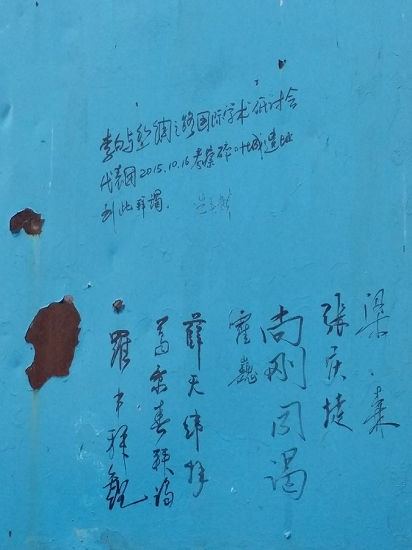 李白与丝绸之路国际学术研讨会
代表团2015.10.16考察碎叶城遗址
到此拜谒.
梁森
张庆捷
尚刚同谒
霍巍
薛天纬拜
葛景春拜谒
羅丰拜觀